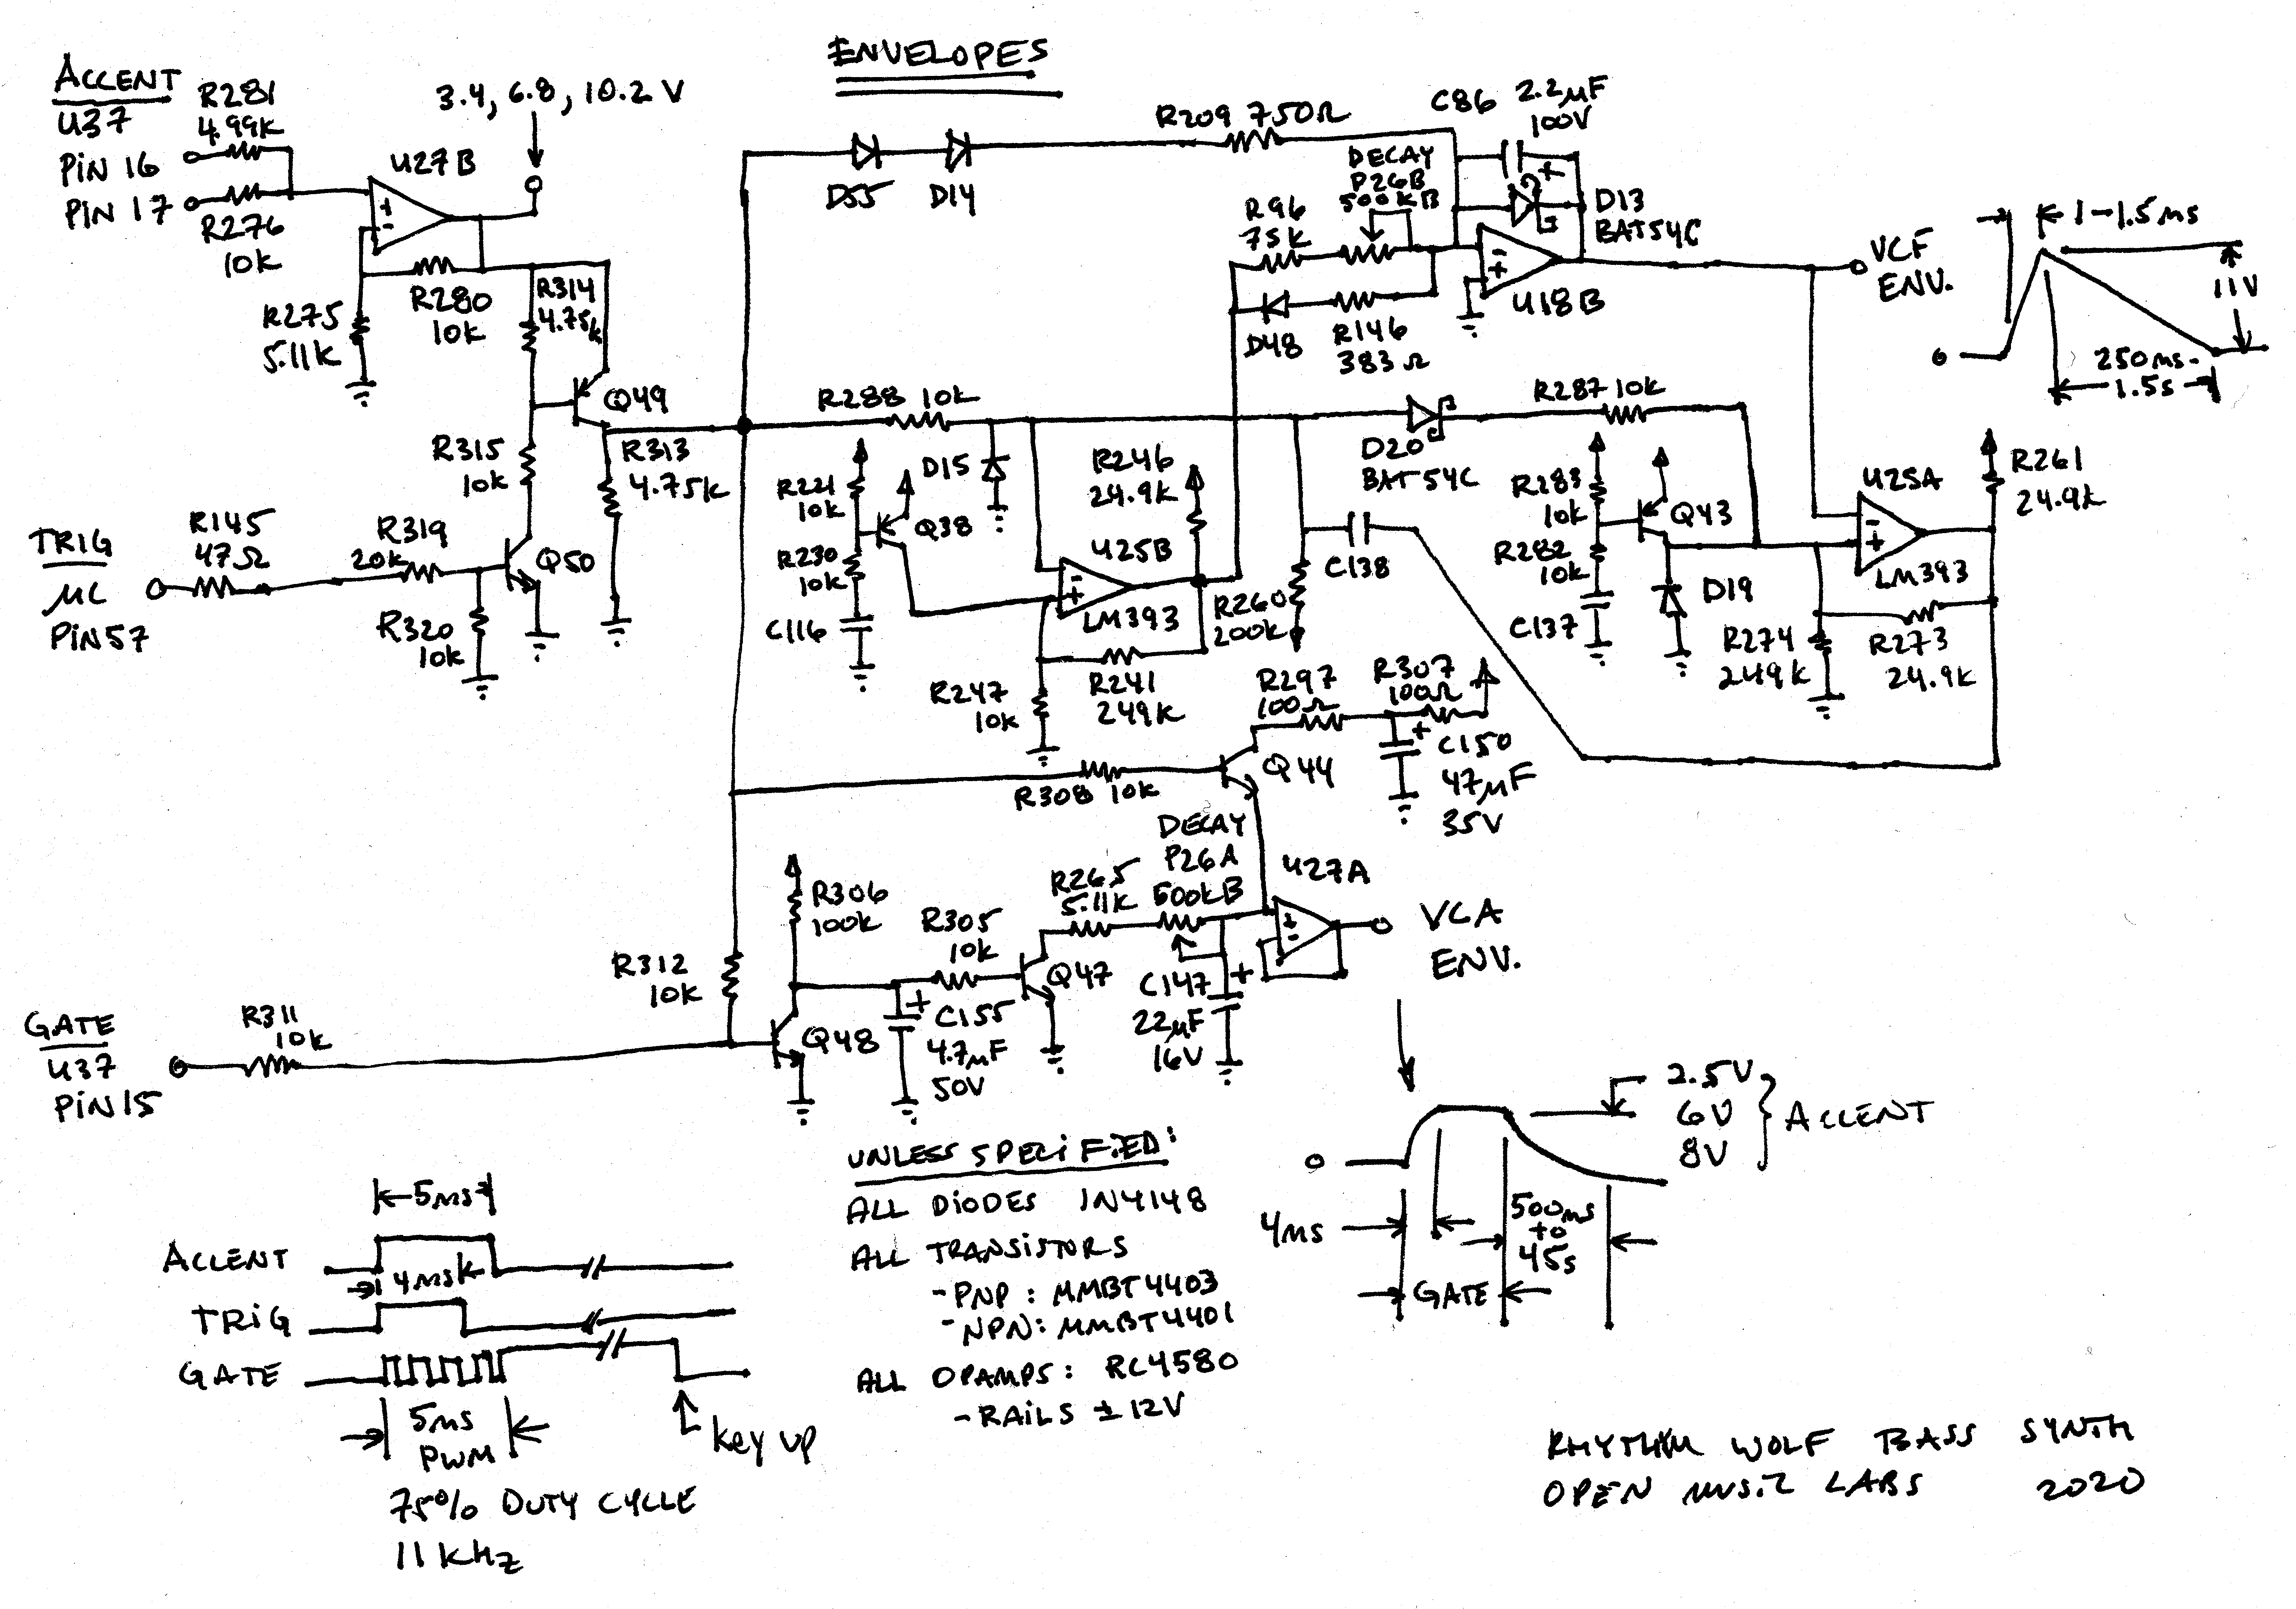 ENVELOPES
ACCENT
U37
PIN 16
PIN 17
R281
4.99K
R276
10K
3.4, 6.8, 10.2 V
U27B
R275
5.11K
R280
10K
R314
4.75K
Q49
R315
10K
R313
4.75K
TRIG
µC
PIN 57
R145
47Ω
R319
20K
R320
10K
Q50
D55
D14
R209 750Ω
C86 2.2µF
100V
DECAY
P26B
500KB
R96
75K
D13
BAT54C
D48
R146
383Ω
U18B
VCF
ENV.
1-1.5ms
11V
0
250ms-
1.5s
R288 10K
D15
R221
10K
Q38
R230
10K
C116
R246
24.9K
U25B
LM393
R247
10K
R241
249K
D20
BAT54C
R287 10K
C138
R260
200K
R283
10K
Q43
R282
10K
C137
D19
U25A
LM393
R261
24.9K
R274
249K
R273
24.9K
R297
100Ω
R307
100Ω
C150
47µF
35V
R308 10K
Q44
DECAY
P26A
500KB
R265
5.11K
U27A
VCA
ENV.
R306
100K
R305
10K
Q47
C147
22µF
16V
R312
10K
Q48
C155
4.7µF
50V
GATE
U37
PIN 15
R311
10K
5ms
ACCENT
4ms
TRIG
GATE
5ms
PWM
KEY UP
75% DUTY CYCLE
11KHz
UNLESS SPECIFIED:
ALL DIODES 1N4148
ALL TRANSISTORS
- PNP: MMBT4403
- NPN: MMBT4401
ALL OPAMPS: RC4580
- RAILS ±12V
0
2.5V
6V
8V
ACCENT
4ms
500ms
to
45s
GATE
RHYTHM WOLF BASS SYNTH
OPEN MUSIC LABS 2020